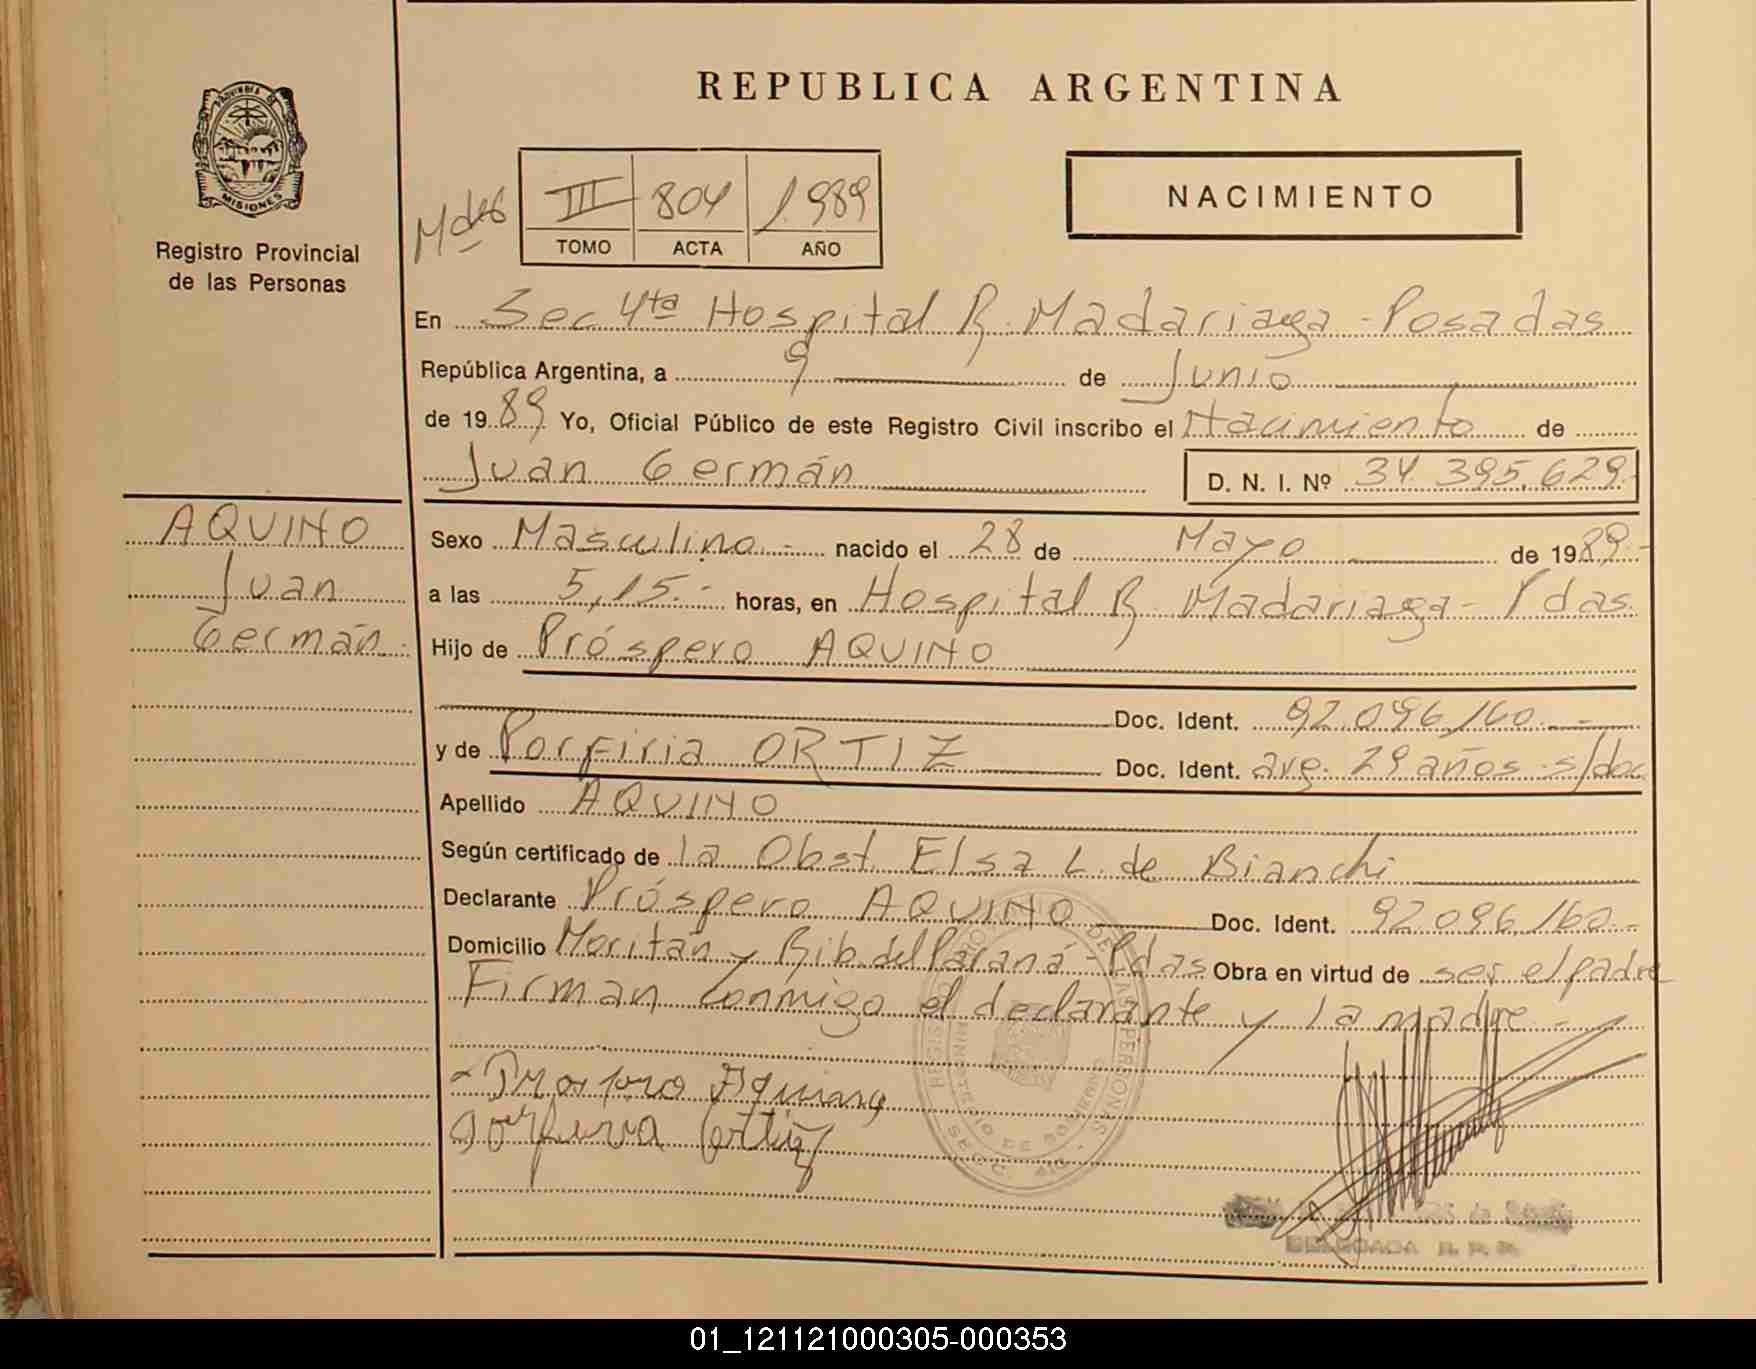 REPUBLICA ARGENTINA
PROVINCIA DE
MISIONES
Registro Provincial
de las Personas
III 804 1989
TOMO ACTA AÑO
NACIMIENTO
En Sec 4ta Hospital R. Madariaga - Posadas
República Argentina, a 9 de Junio
de 1989 Yo, Oficial Público de este Registro Civil inscribo el Nacimiento de
Juan Germán D. N. I. Nº 34.395.629.-
AQUINO
Juan
Germán.-
Sexo Masculino.- nacido el 28 de Mayo de 1989.-
a las 5,15.- horas, en Hospital R. Madariaga - Pdas.
Hijo de Próspero AQUINO
Doc. Ident. 92.096.160.-
y de Porfiria ORTIZ Doc. Ident. arg. 29 años s/doc
Apellido AQUINO
Según certificado de la Obst. Elsa L. de Bianchi
Declarante Próspero AQUINO Doc. Ident. 92.096.160.-
Domicilio Moritán y Rib. del Paraná - Pdas Obra en virtud de ser el padre
Firman conmigo el declarante y la madre.-
REGISTRO DE LAS PERSONAS
MINISTERIO DE GOBIERNO
Prospero Aquino
Porfiria Ortiz
DELEGADA R. P. P.
01_121121000305-000353